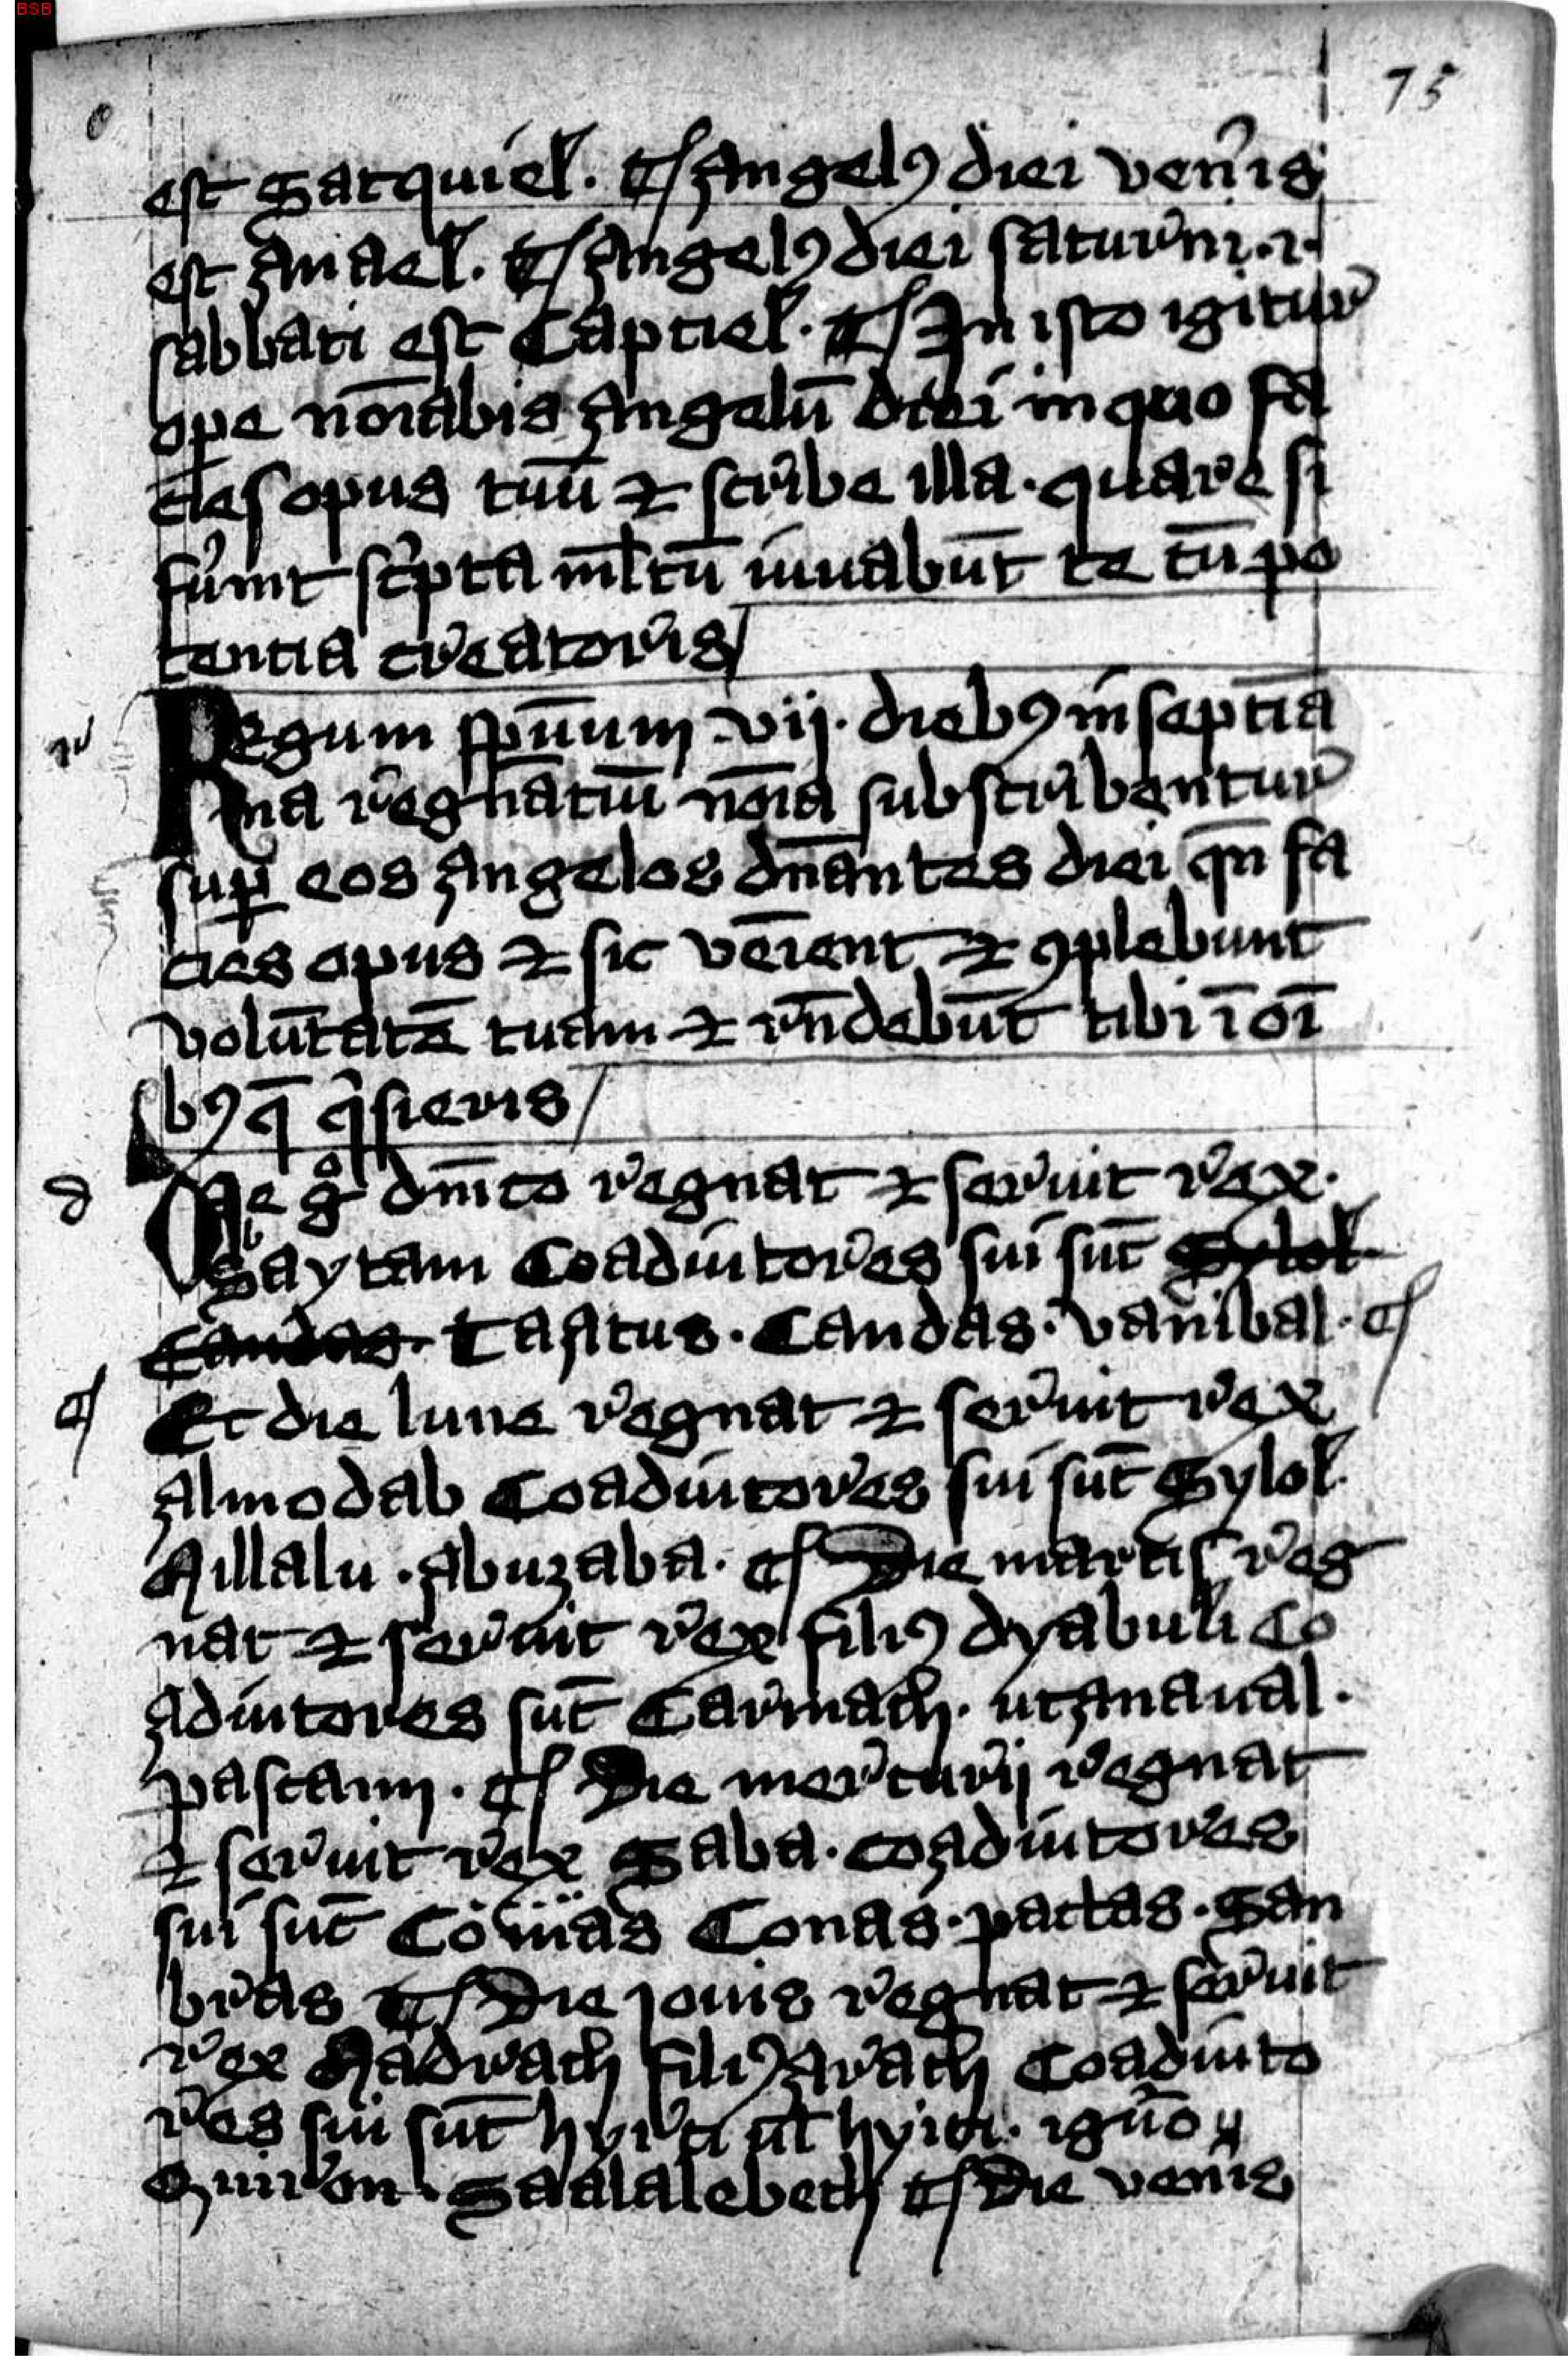 75
est Satquiel. ¶ Angelꝰ diei ven̄is
est Anael. ¶ Angelꝰ diei saturni .i.
sabbati est Captiel. ¶ In isto igitur
ope no̅iabis Angelu̅ diei in quo fa
cies opus tuu̅ ⁊ scribe illa. quare si
fu̓int sc̓pta ml̅tu̅ iuuabu̅t te cu̅ po
tentia creatoris
Regum sp̅uum vij. diebꝰ in septia̅
na regna̅tiu̅ no̅ia subscribentur
suꝑ eos Angelos dn̅antes diei qn̅ fa
cies opus ⁊ sic ve̅ient ⁊ ꝯplebunt
volu̅tate̅ tuam ⁊ rn̅debu̅t tibi i̅ oi̅
bꝰ q̅ q̓sieris
Die g̊ dn̅ico regnat ⁊ seruit rex.
Saytam Coadiutores sui su̅t Sylol
Candas. Taatus. Candas. vanibal. ¶
Et die lune regnat ⁊ seruit rex
Almodab Coadiutores sui su̅t Sylol.
Millalu. Abuzaba. ¶ Die martis reg
nat ⁊ seruit rex filiꝰ dyabuli Co
adiutores su̅t Carmach. utAnaual.
pascami. ¶ Die mercurij regnat
⁊ seruit rex Saba. coadiutores
sui su̅t Comas Conas. pactas. San
bras ¶ Die iouis regnat ⁊ seruit
rex Madrath filiꝰ Arath Coadiuto
res sui su̅t hyrti ul̅ hyici.
Quiron. Saalalebeth ¶ Die ven̄is